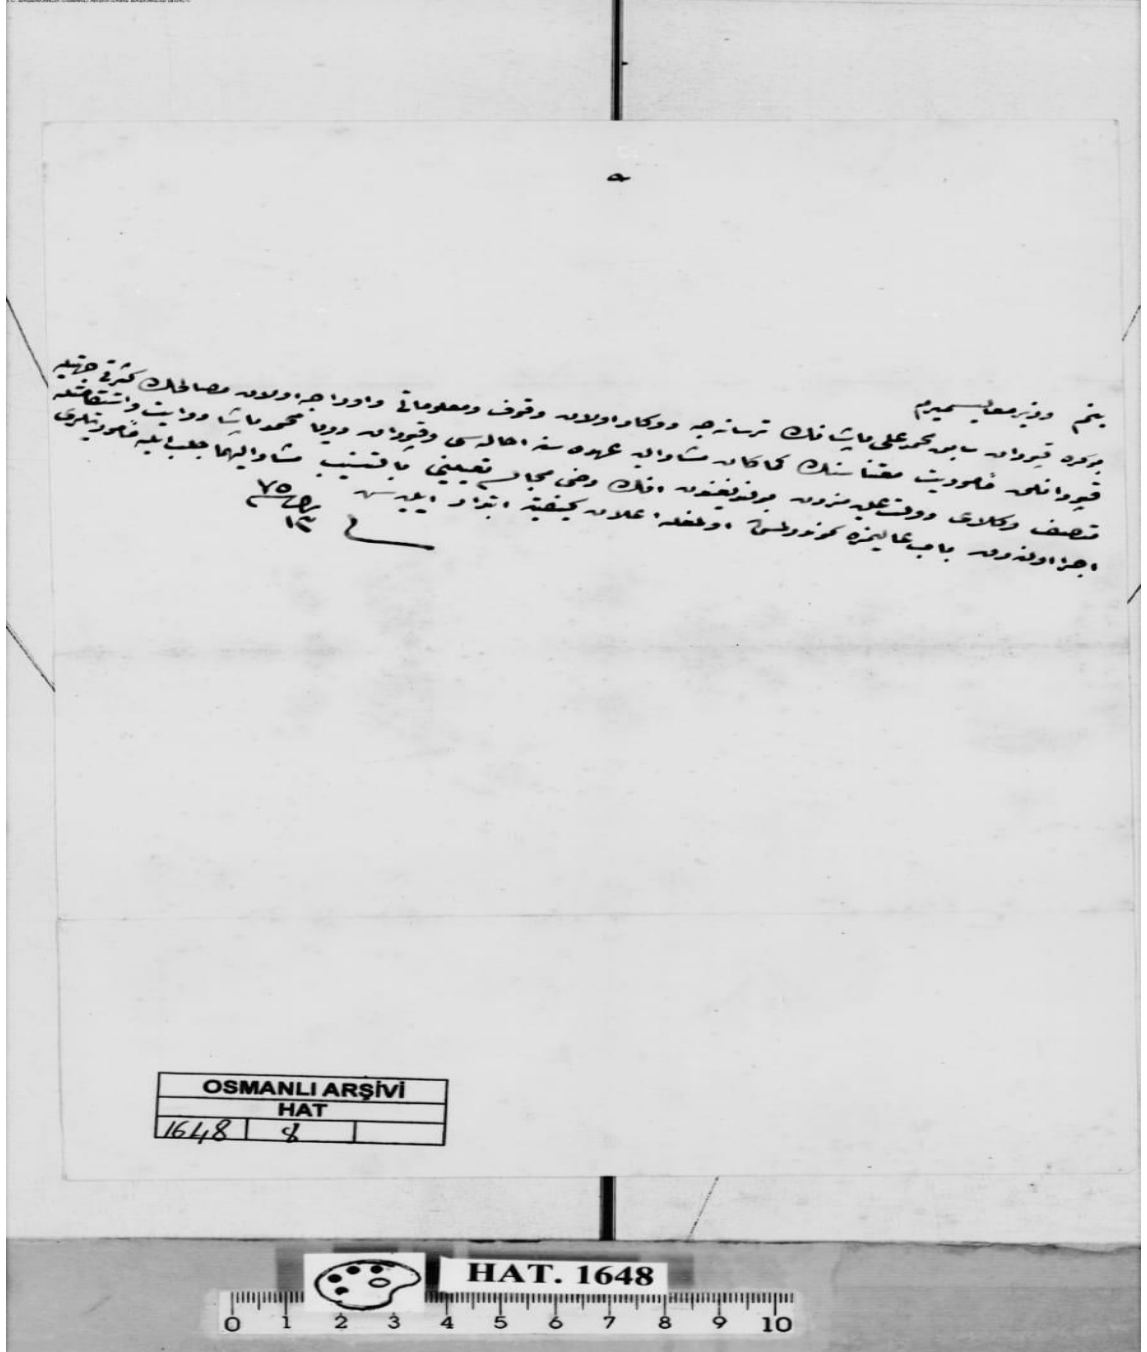 هو
بنم وزير معاليسميرم
بو كره قپودان سابق محمد علي پاشانك ترسانه جه ودركار اولان وقوف ومعلوماتى واوراجه اولان مصالحك كثرتى جهتيله
قپودانلق مأموريت مقتضاسنك كما كان مشاراليه عهده سنه احاله سى وقپودان دريا محمود پاشا درايت واستقامتله
متصف وكلاى دولت عليه مزدن بولنديغندن انك دخى مجالسه تعيينى بالتنسيب مشاراليهما جلب ايله مأموريتلرى
اجرا اولنه رق باب عاليمزه كوندرلمش اولمغله اعلان كيفيته ابتدار ايليه سن
٧٥
١٣
OSMANLI ARŞİVİ
HAT
1648 8
HAT. 1648
0 1 2 3 4 5 6 7 8 9 10